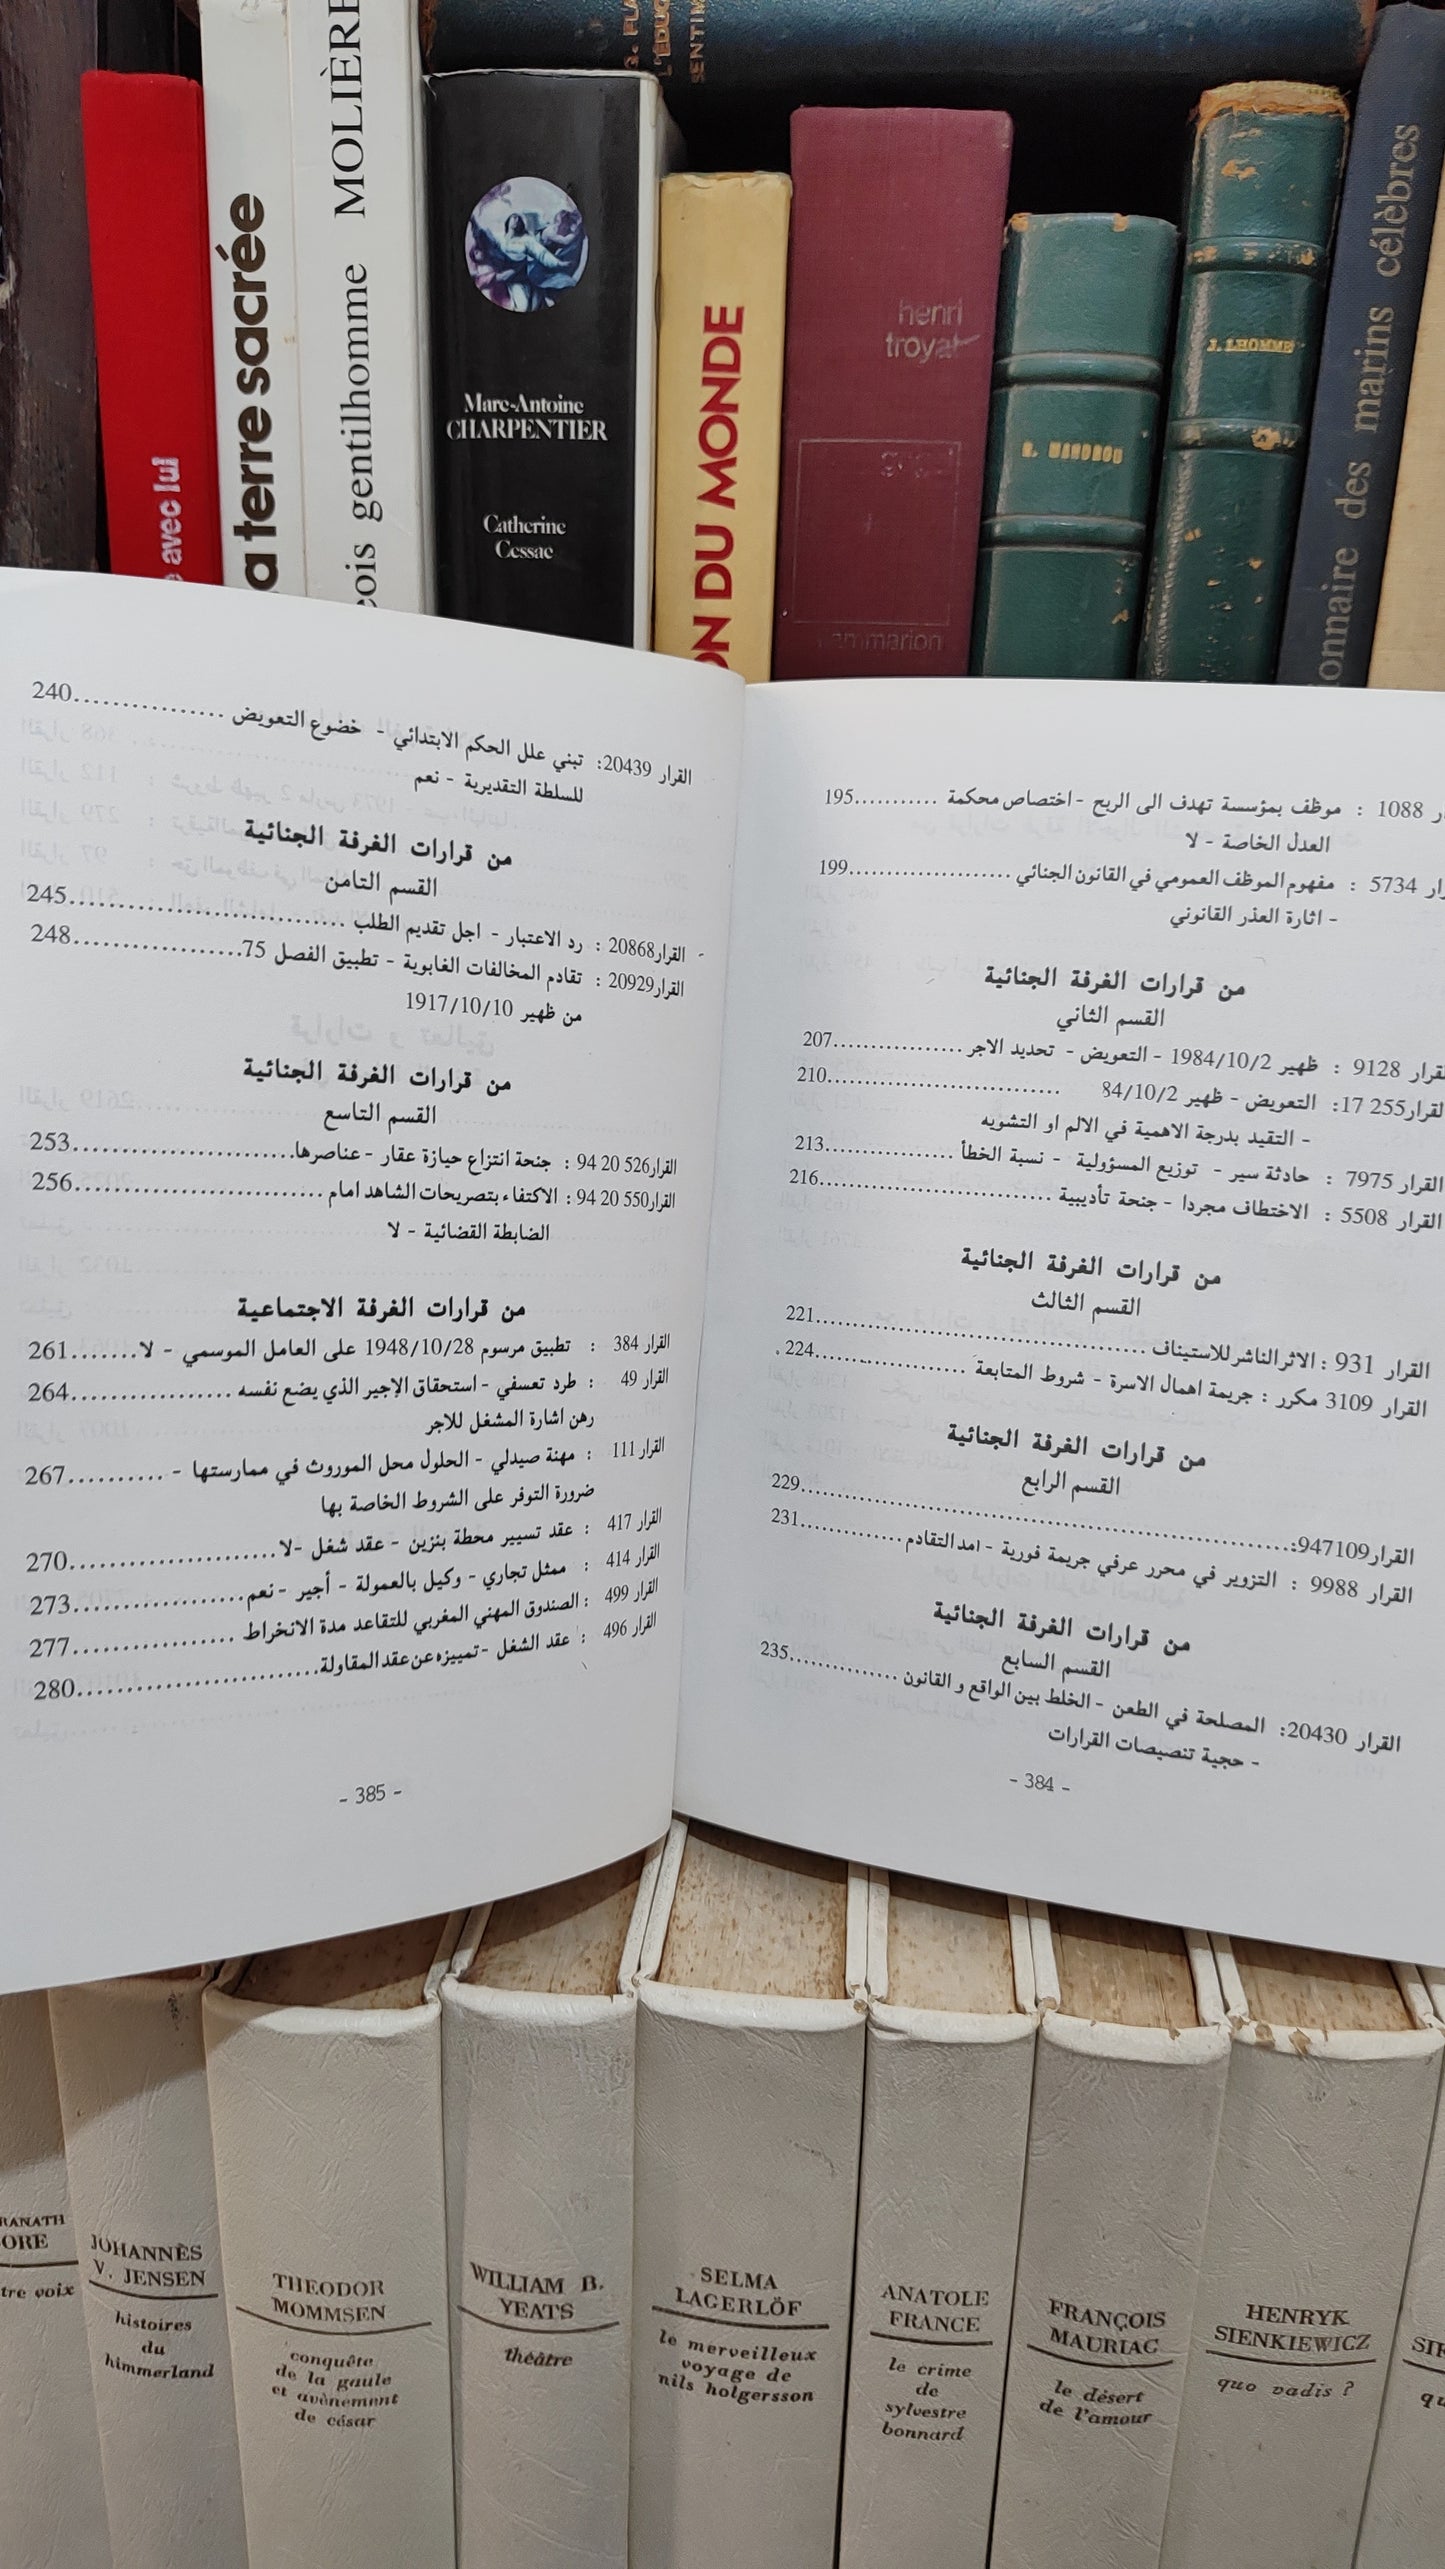 G. FLA
L'ÉDUC
SENTIM
avec lui
a terre sacrée
MOLIÈRE
eois gentilhomme
Marc-Antoine
CHARPENTIER
Catherine
Cessac
ON DU MONDE
henri
troyat
flammarion
R. MANDROU
J. LHOMME
onnaire des marins célèbres
1088 : موظف بمؤسسة تهدف الى الربح - اختصاص محكمة ...........195
العدل الخاصة - لا
5734 : مفهوم الموظف العمومي في القانون الجنائي .....................199
- اثارة العذر القانوني
من قرارات الغرفة الجنائية
القسم الثاني
القرار 9128 : ظهير 1984/10/2 - التعويض - تحديد الاجر .................207
القرار255 17: التعويض - ظهير 84/10/2 ..............................210
- التقيد بدرجة الاهمية في الالم او التشويه
القرار 7975 : حادثة سير - توزيع المسؤولية - نسبة الخطأ .................213
القرار 5508 : الاختطاف مجردا - جنحة تأديبية ..............................216
من قرارات الغرفة الجنائية
القسم الثالث
القرار 931 : الاثر الناشر للاستيناف ...........................................221
القرار 3109 مكرر : جريمة اهمال الاسرة - شروط المتابعة ....................224
من قرارات الغرفة الجنائية
القسم الرابع
القرار947109:................................................................229
القرار 9988 : التزوير في محرر عرفي جريمة فورية - امد التقادم .............231
من قرارات الغرفة الجنائية
القسم السابع
القرار 20430: المصلحة في الطعن - الخلط بين الواقع و القانون ..............235
- حجية تنصيصات القرارات
- 384 -
القرار 20439: تبني علل الحكم الابتدائي - خضوع التعويض ................240
للسلطة التقديرية - نعم
من قرارات الغرفة الجنائية
القسم الثامن
- القرار20868 : رد الاعتبار - اجل تقديم الطلب ..............................245
القرار20929 : تقادم المخالفات الغابوية - تطبيق الفصل 75.................248
من ظهير 1917/10/10
من قرارات الغرفة الجنائية
القسم التاسع
القرار526 20 94 : جنحة انتزاع حيازة عقار - عناصرها.........................253
القرار550 20 94 : الاكتفاء بتصريحات الشاهد امام ............................256
الضابطة القضائية - لا
من قرارات الغرفة الاجتماعية
القرار 384 : تطبيق مرسوم 1948/10/28 على العامل الموسمي - لا.......261
القرار 49 : طرد تعسفي - استحقاق الإجير الذي يضع نفسه ...................264
رهن اشارة المشغل للاجر
القرار 111 : مهنة صيدلي - الحلول محل الموروث في ممارستها - ..........267
ضرورة التوفر على الشروط الخاصة بها
القرار 417 : عقد تسيير محطة بنزين - عقد شغل -لا.......................270
القرار 414 : ممثل تجاري - وكيل بالعمولة - أجير - نعم....................273
القرار 499 : الصندوق المهني المغربي للتقاعد مدة الانخراط .................277
القرار 496 : عقد الشغل - تمييزه عن عقد المقاولة...........................280
- 385 -
RANATH
ORE
tre voix
JOHANNÈS
V. JENSEN
histoires
du
himmerland
THEODOR
MOMMSEN
conquête
de la gaule
et avènement
de césar
WILLIAM B.
YEATS
théâtre
SELMA
LAGERLÖF
le merveilleux
voyage de
nils holgersson
ANATOLE
FRANCE
le crime
de
sylvestre
bonnard
FRANÇOIS
MAURIAC
le désert
de l'amour
HENRYK
SIENKIEWICZ
quo vadis ?
SIE
qu